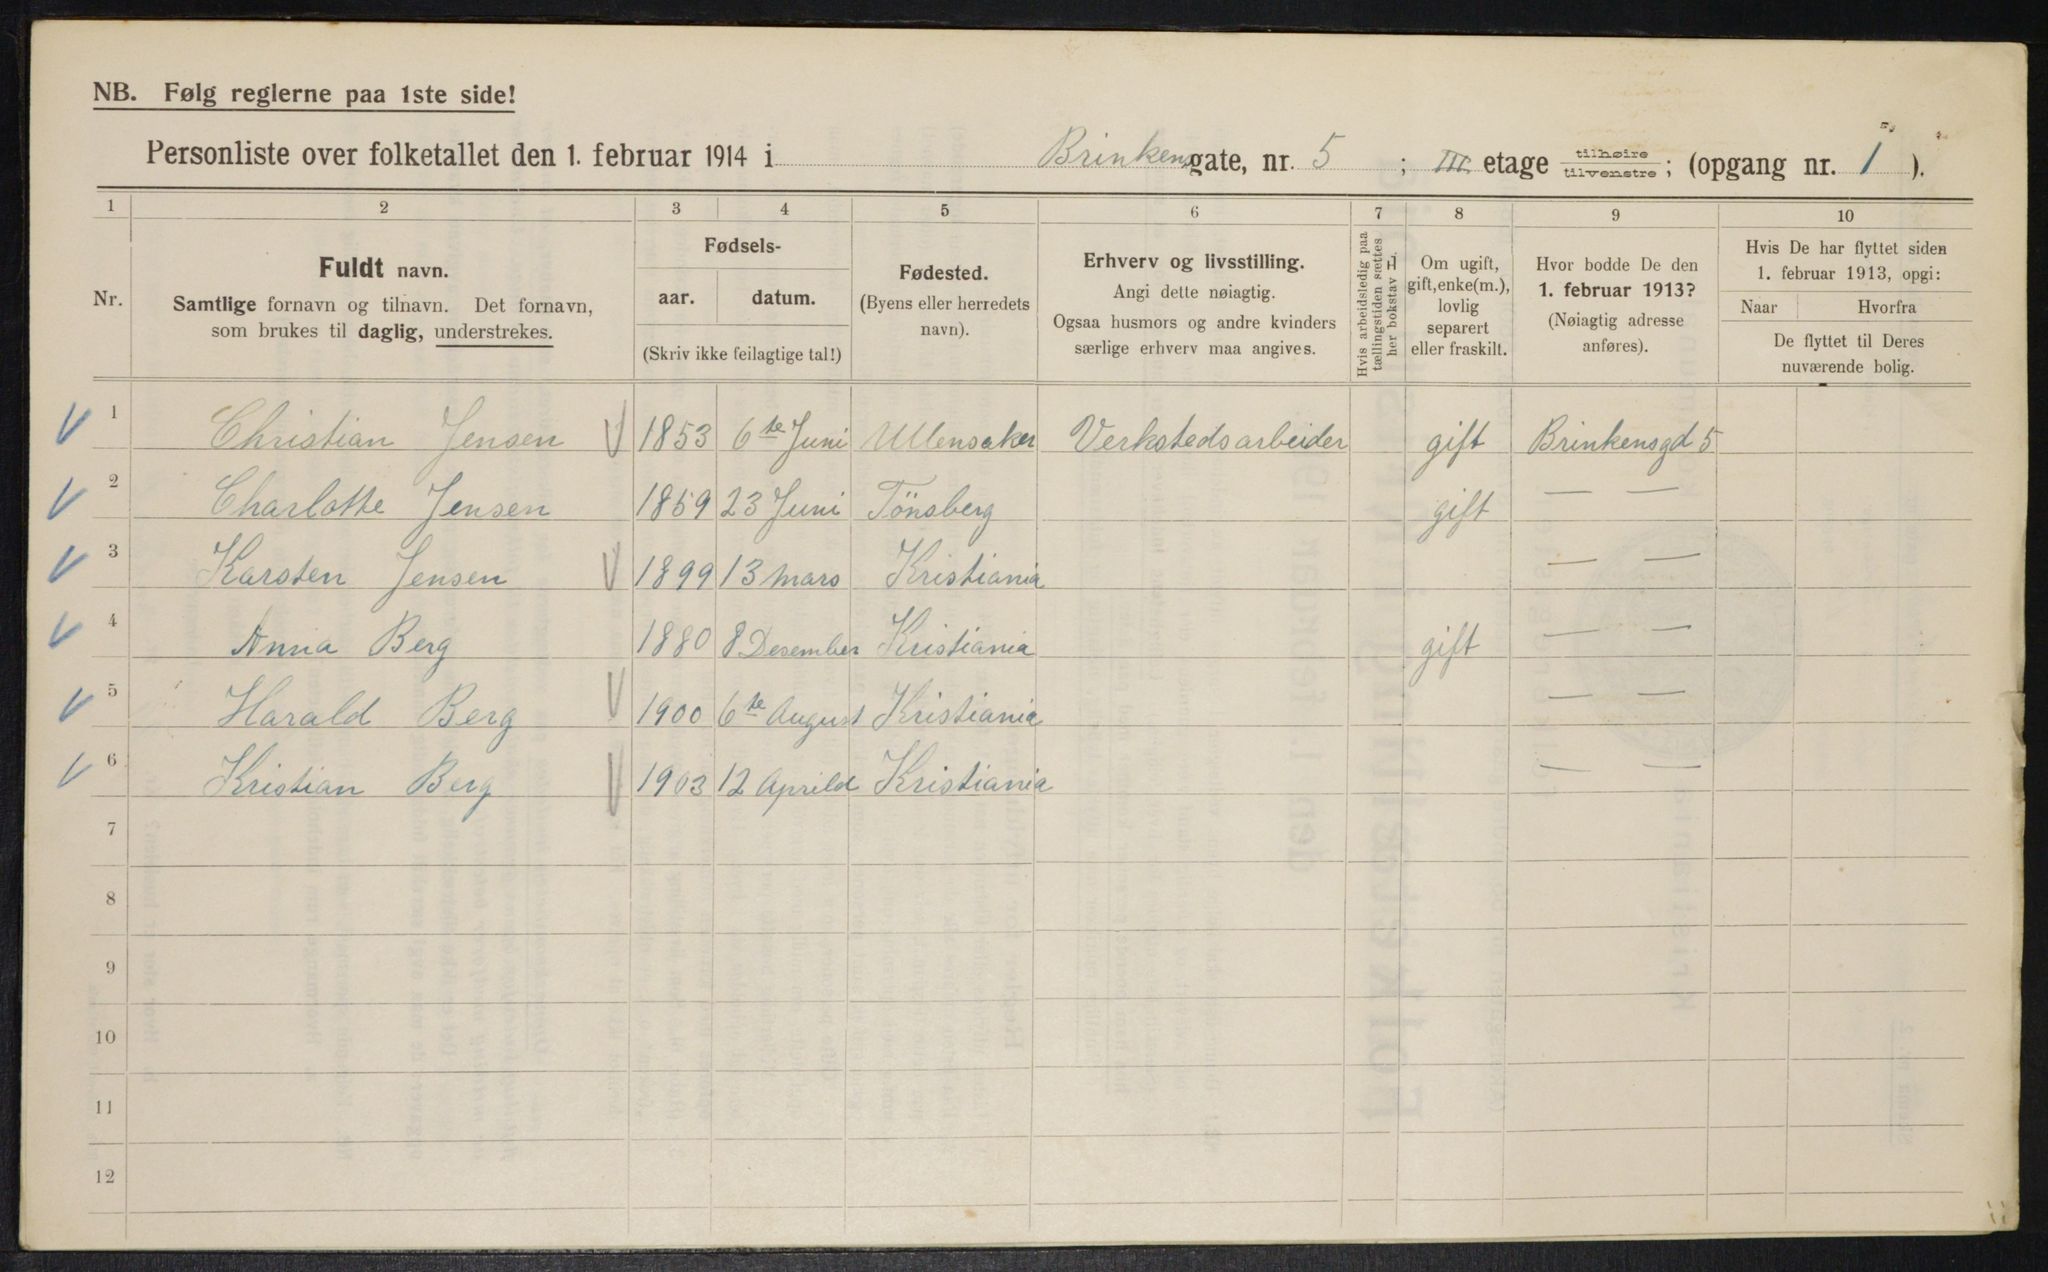 NB. Følg reglerne paa 1ste side!
Personliste over folketallet den 1. februar 1914 i Brinkensgate, nr. 5 ; III. etage tilhøire tilvenstre ; (opgang nr. 1 ).
1 2 3 4 5 6 7 8 9 10
Nr.
Fuldt navn.
Samtlige fornavn og tilnavn. Det fornavn,
som brukes til daglig, understrekes.
Fødsels-
aar. datum.
(Skriv ikke feilagtige tal!)
Fødested.
(Byens eller herredets
navn).
Erhverv og livsstilling.
Angi dette nøiagtig.
Ogsaa husmors og andre kvinders
særlige erhverv maa angives.
Hvis arbeidsledig paa
tællingstiden sættes
her bokstav L.
Om ugift,
gift, enke(m.),
lovlig
separert
eller fraskilt.
Hvor bodde De den
1. februar 1913?
(Nøiagtig adresse
anføres).
Hvis De har flyttet siden
1. februar 1913, opgi:
Naar Hvorfra
De flyttet til Deres
nuværende bolig.
1 Christian Jensen 1853 6te Juni Ullensaker Verkstedsarbeider gift Brinkensgd 5
2 Charlotte Jensen 1859 23 Juni Tönsberg gift — —
3 Karsten Jensen 1899 13 mars Kristiania — —
4 Anna Berg 1880 8 Desember Kristiania gift — —
5 Harald Berg 1900 6te August Kristiania — —
6 Kristian Berg 1903 12 Aprild Kristiania — —
7
8
9
10
11
12